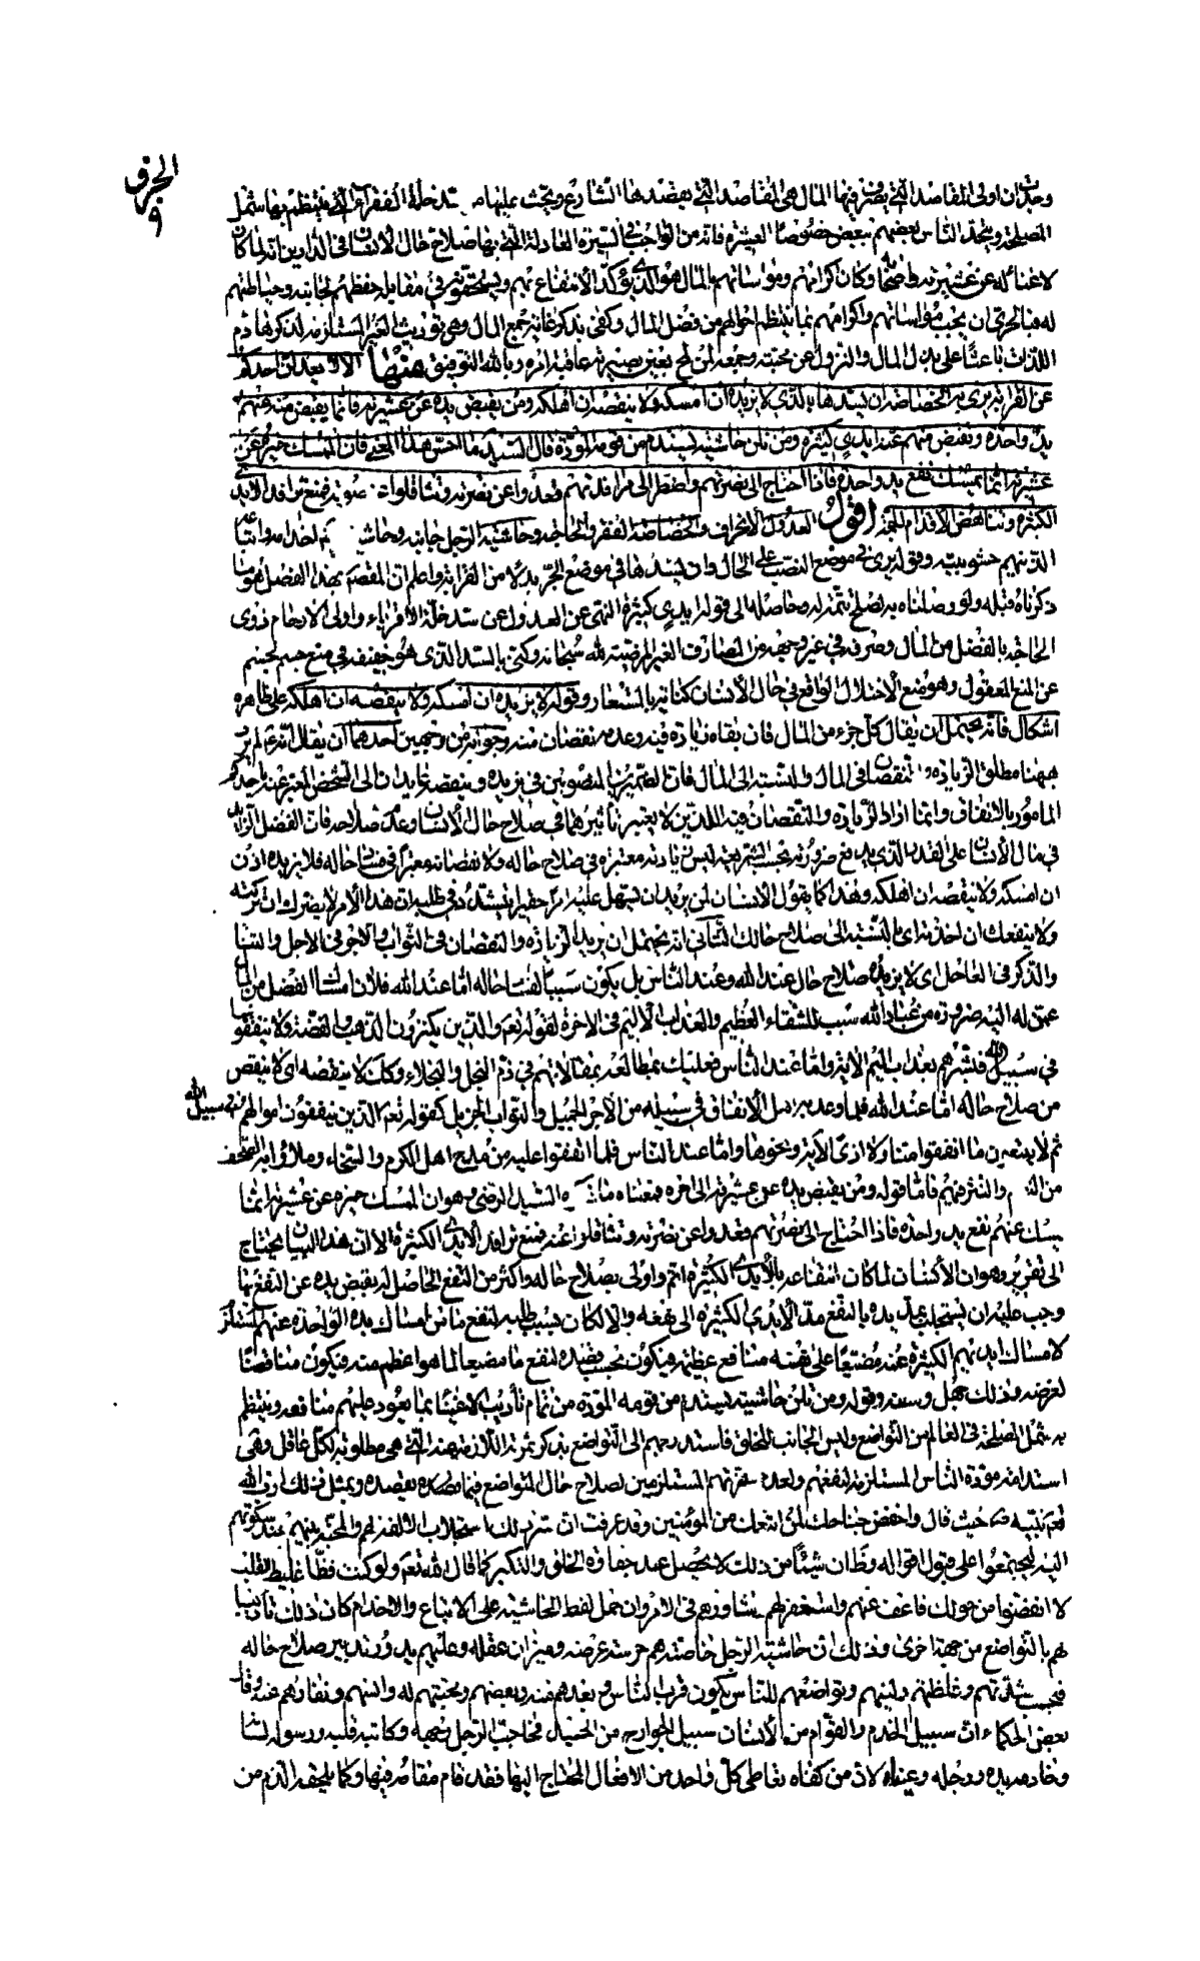 الجزء
٩
وجدت ان اولى المقاصد التى يصرف فيها المال هى المقاصد التى يقصدها الشارع ويحث عليها من سد خلة الفقراء التى ينتظم بها شمل
المصلحة ويتحد الناس بعضهم ببعض خصوصا العشيرة فانه من الواجب فى السيرة العادلة التى بها صلاح حال الانسان فى الدارين انه لما كان
لا غناء له عن عشيرته وكان اكرامهم ومواساتهم بالمال هو الذى يؤكد الانتفاع بهم ويستحقونه فى مقابلة حفظهم لجانبه وحياطتهم
له فبالحرى ان يجب مواساتهم واكرامهم بما ينتظم احوالهم من فضل المال وكفى بذكر غاية جمع المال وهى توريث الغير المستلزمة لذكر هادم
اللذات باعثا على بذل المال والنزول عن محبته وجمعه لمن لمح بعين بصيرته عاقبة امره وبالله التوفيق منها الا لا يعدلن احدكم
عن القرابة يرى بها الخصاصة ان يسدها بالذى لا يزيده ان امسكه ولا ينقصه ان اهلكه ومن يقبض يده عن عشيرته فانما يقبض منه عنهم
يد واحدة وتقبض منهم عنه ايدى كثيرة ومن تلن حاشيته يستدم من قومه المودة قال السيد ما احسن هذا المعنى فان الممسك خيره عن
عشيرته انما يمسك نفع يد واحدة فاذا احتاج الى نصرتهم واضطر الى مرافدتهم قعدوا عن نصرته وتثاقلوا عن صوته فمنع ترافد الايدى
الكثيرة وتناهض الاقدام الجمة اقول العدول الانحراف والخصاصة الفقر والحاجة وحاشية الرجل جانبه وحاشيته لخدامه واتباعه
الذين هم حشو بيته وقوله يرى فى موضع النصب على الحال وان يسدها فى موضع الجر بدلا من القرابة واعلم ان المقصد بهذا الفصل هو ما
ذكرناه قبله ولو وصلناه به لصلح تتمة له وحاصله الى قوله ايدى كثيرة النهى عن العدول عن سد خلة الاقرباء واولى الارحام ذوى
الحاجة بالفضل من المال وصرفه فى غير وجهه من المصارف الغير المرضية لله سبحانه وكنى بالسد الذى هو حقيقة فى منع جسم لجسم
عن المنع المعقول وهو منع الاختلال الواقع فى حال الانسان كناية بالمستعار وقوله لا يزيده ان امسكه ولا ينقصه ان اهلكه على ظاهره
اشكال فانه يحتمل ان يقال كل جزء من المال فان بقاه زيادة فيه وعدمه نقصان منه وجوابه من وجهين احدهما ان يقال انه لم يرد
ههنا مطلق الزيادة والنقصان فى المال وبالنسبة الى المال فان الضميرين المنصوبين فى يزيده وينقصه عايدان الى الشخص المعبر عنه باحدكم
المامور بالانفاق وانما اراد الزيادة والنقصان فيه اللذين لا يعتبر تاثيرهما فى صلاح حال الانسان وعدم صلاحه فان الفضل الزايد
فى مال الانسان على القدر الذى يدفع ضرورته بحسب الشريعة ليس زيادته معتبرة فى صلاح حاله ولا نقصانه معتبرا فى فساد حاله فلا يزيده اذن
ان امسكه ولا ينقصه ان اهلكه وهذا كما يقول الانسان لمن يريد ان يسهل عليه امرا حقيرا يتشدد فى طلبه ان هذا الامر لا يضرك ان تركته
ولا ينفعك ان اخذته اى بالنسبة الى صلاح حالك الثانى انه يحتمل ان يريد الزيادة والنقصان فى الثواب والاجر فى الاجل والثناء
والذكر فى العاجل اى لا يزيده صلاح حال عند الله وعند الناس بل يكون سببا لفساد حاله اما عند الله فلان امساك الفضل من المال
عمن له اليه ضرورة من عباد الله سبب للشقاء العظيم والعذاب الاليم فى الاخرة لقوله تعم والذين يكنزون الذهب والفضة ولا ينفقونها
فى سبيل الله فبشرهم بعذاب اليم الاية واما عند الناس فعليك بمطالعة مقالاتهم فى ذم البخل والبخلاء وكك لا ينقصه اى لا ينقص
من صلاح حاله اما عند الله فلما وعد به اهل الانفاق فى سبيله من الاجر الجميل والثواب الجزيل كقوله تعم الذين ينفقون اموالهم فى سبيل الله
ثم لا يتبعون ما انفقوا منا ولا اذى الاية ونحوها واما عند الناس فلما اتفقوا عليه من مدح اهل الكرم والسخاء وملاؤا به الصحف
من النثر والنظم فاما قوله ومن يقبض يده عن عشيرته الى اخره فمعناه ما ذكره السيد الرضى وهو ان الممسك خيره عن عشيرته انما
يمسك عنهم نفع يد واحدة فاذا احتاج الى نصرتهم قعدوا عن نصرته وتثاقلوا عنه فمنع ترافد الايدى الكثيرة الا ان هذا البيان يحتاج
الى تقرير وهو ان الانسان لما كان انتفاعه بالايدى الكثيرة اتم واولى بصلاح حاله واكثر من النفع الحاصل له بقبض يده عن النفع بها
وجب عليه ان يستجلب بمد يده بالنفع مد الايدى الكثيرة الى نفعه والا لكان بسبب طلبه لنفع ما من امساك يده الواحدة عنهم المستلزم
لامساك ايديهم الكثيرة عنه مضيعا على نفسه منافع عظيمة فيكون بحسب قصده لنفع ما مضيعا لما هو اعظم منه فيكون مناقضا
لغرضه وذلك جهل وسفه وقوله ومن تلن حاشيته يستدم من قومه المودة من تمام تاديب الاغنياء بما يعود عليهم منافعه وينتظم
به شمل المصلحة فى العالم من التواضع ولين الجانب للخلق فاستدرجهم الى التواضع بذكر ثمرته اللازمة عنه التى هى مطلوبة لكل عاقل وهى
استدامة مودة الناس المستلزمة لنفعهم ولعدم نفرتهم المستلزمين لصلاح حال المتواضع فيما يقصده وبمثل ذلك ادب الله
تعم نبيه ص حيث قال واخفض جناحك لمن اتبعك من المؤمنين وقد عرفت ان ثمرة ذلك استجلاب الالفة لهم والمحبة بينهم عند سكونهم
اليه ليجتمعوا على قبول اقواله وظ ان شيئا من ذلك لا يحصل عند جفاوة الخلق والتكبر كما قال الله تعم ولو كنت فظا غليظ القلب
لا انفضوا من حولك فاعف عنهم واستغفر لهم وشاورهم فى الامر وان حمل لفظ الحاشية على الاتباع والاخدام كان ذلك تاديبا
لهم بالتواضع من جهة اخرى وذلك ان حاشية الرجل خاصته هم حرسة عرضه وميزان عقله وعليهم يدور تدبير صلاح حاله
فبحسب شدتهم وغلظتهم ولينهم وتواضعهم للناس يكون قرب الناس وبعدهم منه وبغضهم ومحبتهم له وانسهم ونفارهم عنه وقال
بعض الحكماء ان سبيل الخدم والقوام من الانسان سبيل الجوارح من الجسد فحاجب الرجل وجهه وكاتبه قلبه ورسوله لسانه
وخادمه يده ورجله وعيناه لان من كفاه تعاطى كل واحد من الافعال المحتاج اليها فقد قام مقامه فيها وكما يلحقه الذم من